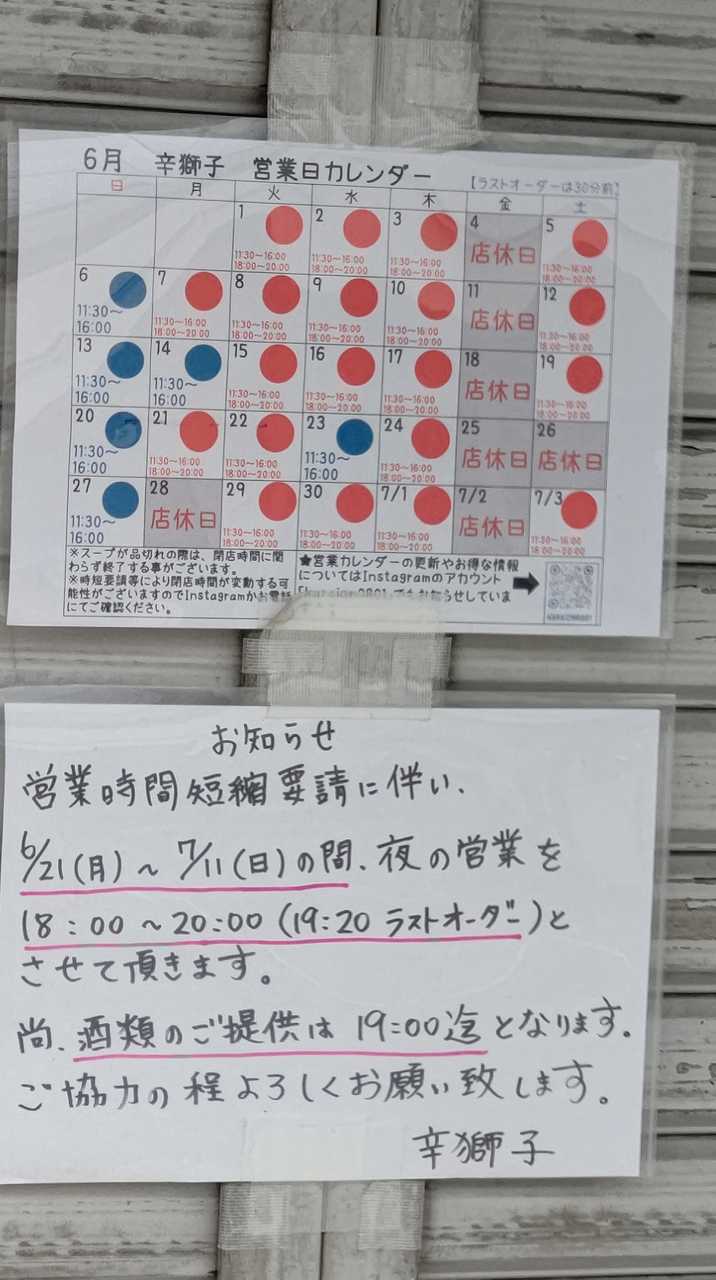 6月 辛獅子 営業日カレンダー 【ラストオーダーは30分前】
日 月 火 水 木 金 土
1 2 3 4 5
11:30～16:00 11:30～16:00 11:30～16:00 店休日 11:30～16:00
18:00～20:00 18:00～20:00 18:00～20:00 18:00～20:00
6 7 8 9 10 11 12
11:30～ 11:30～16:00 11:30～16:00 11:30～16:00 11:30～16:00 店休日 11:30～16:00
16:00 18:00～20:00 18:00～20:00 18:00～20:00 18:00～20:00 18:00～20:00
13 14 15 16 17 18 19
11:30～ 11:30～ 11:30～16:00 11:30～16:00 11:30～16:00 店休日 11:30～16:00
16:00 16:00 18:00～20:00 18:00～20:00 18:00～20:00 18:00～20:00
20 21 22 23 24 25 26
11:30～ 11:30～16:00 11:30～16:00 11:30～ 11:30～16:00 店休日 店休日
16:00 18:00～20:00 18:00～20:00 16:00 18:00～20:00
27 28 29 30 7/1 7/2 7/3
11:30～ 店休日 11:30～16:00 11:30～16:00 11:30～16:00 店休日 11:30～16:00
16:00 18:00～20:00 18:00～20:00 18:00～20:00 18:00～20:00
※スープが品切れの際は、閉店時間に関
わらず終了する事がございます。
※時短要請等により閉店時間が変動する可
能性がございますのでInstagramかお電話
にてご確認ください。
★営業カレンダーの更新やお得な情報
についてはInstagramのアカウント
でもお知らせしていま
お知らせ
営業時間短縮要請に伴い、
6/21(月)～7/11(日)の間、夜の営業を
18:00～20:00(19:20 ラストオーダー)と
させて頂きます。
尚、酒類のご提供は 19:00迄となります。
ご協力の程よろしくお願い致します。
辛獅子